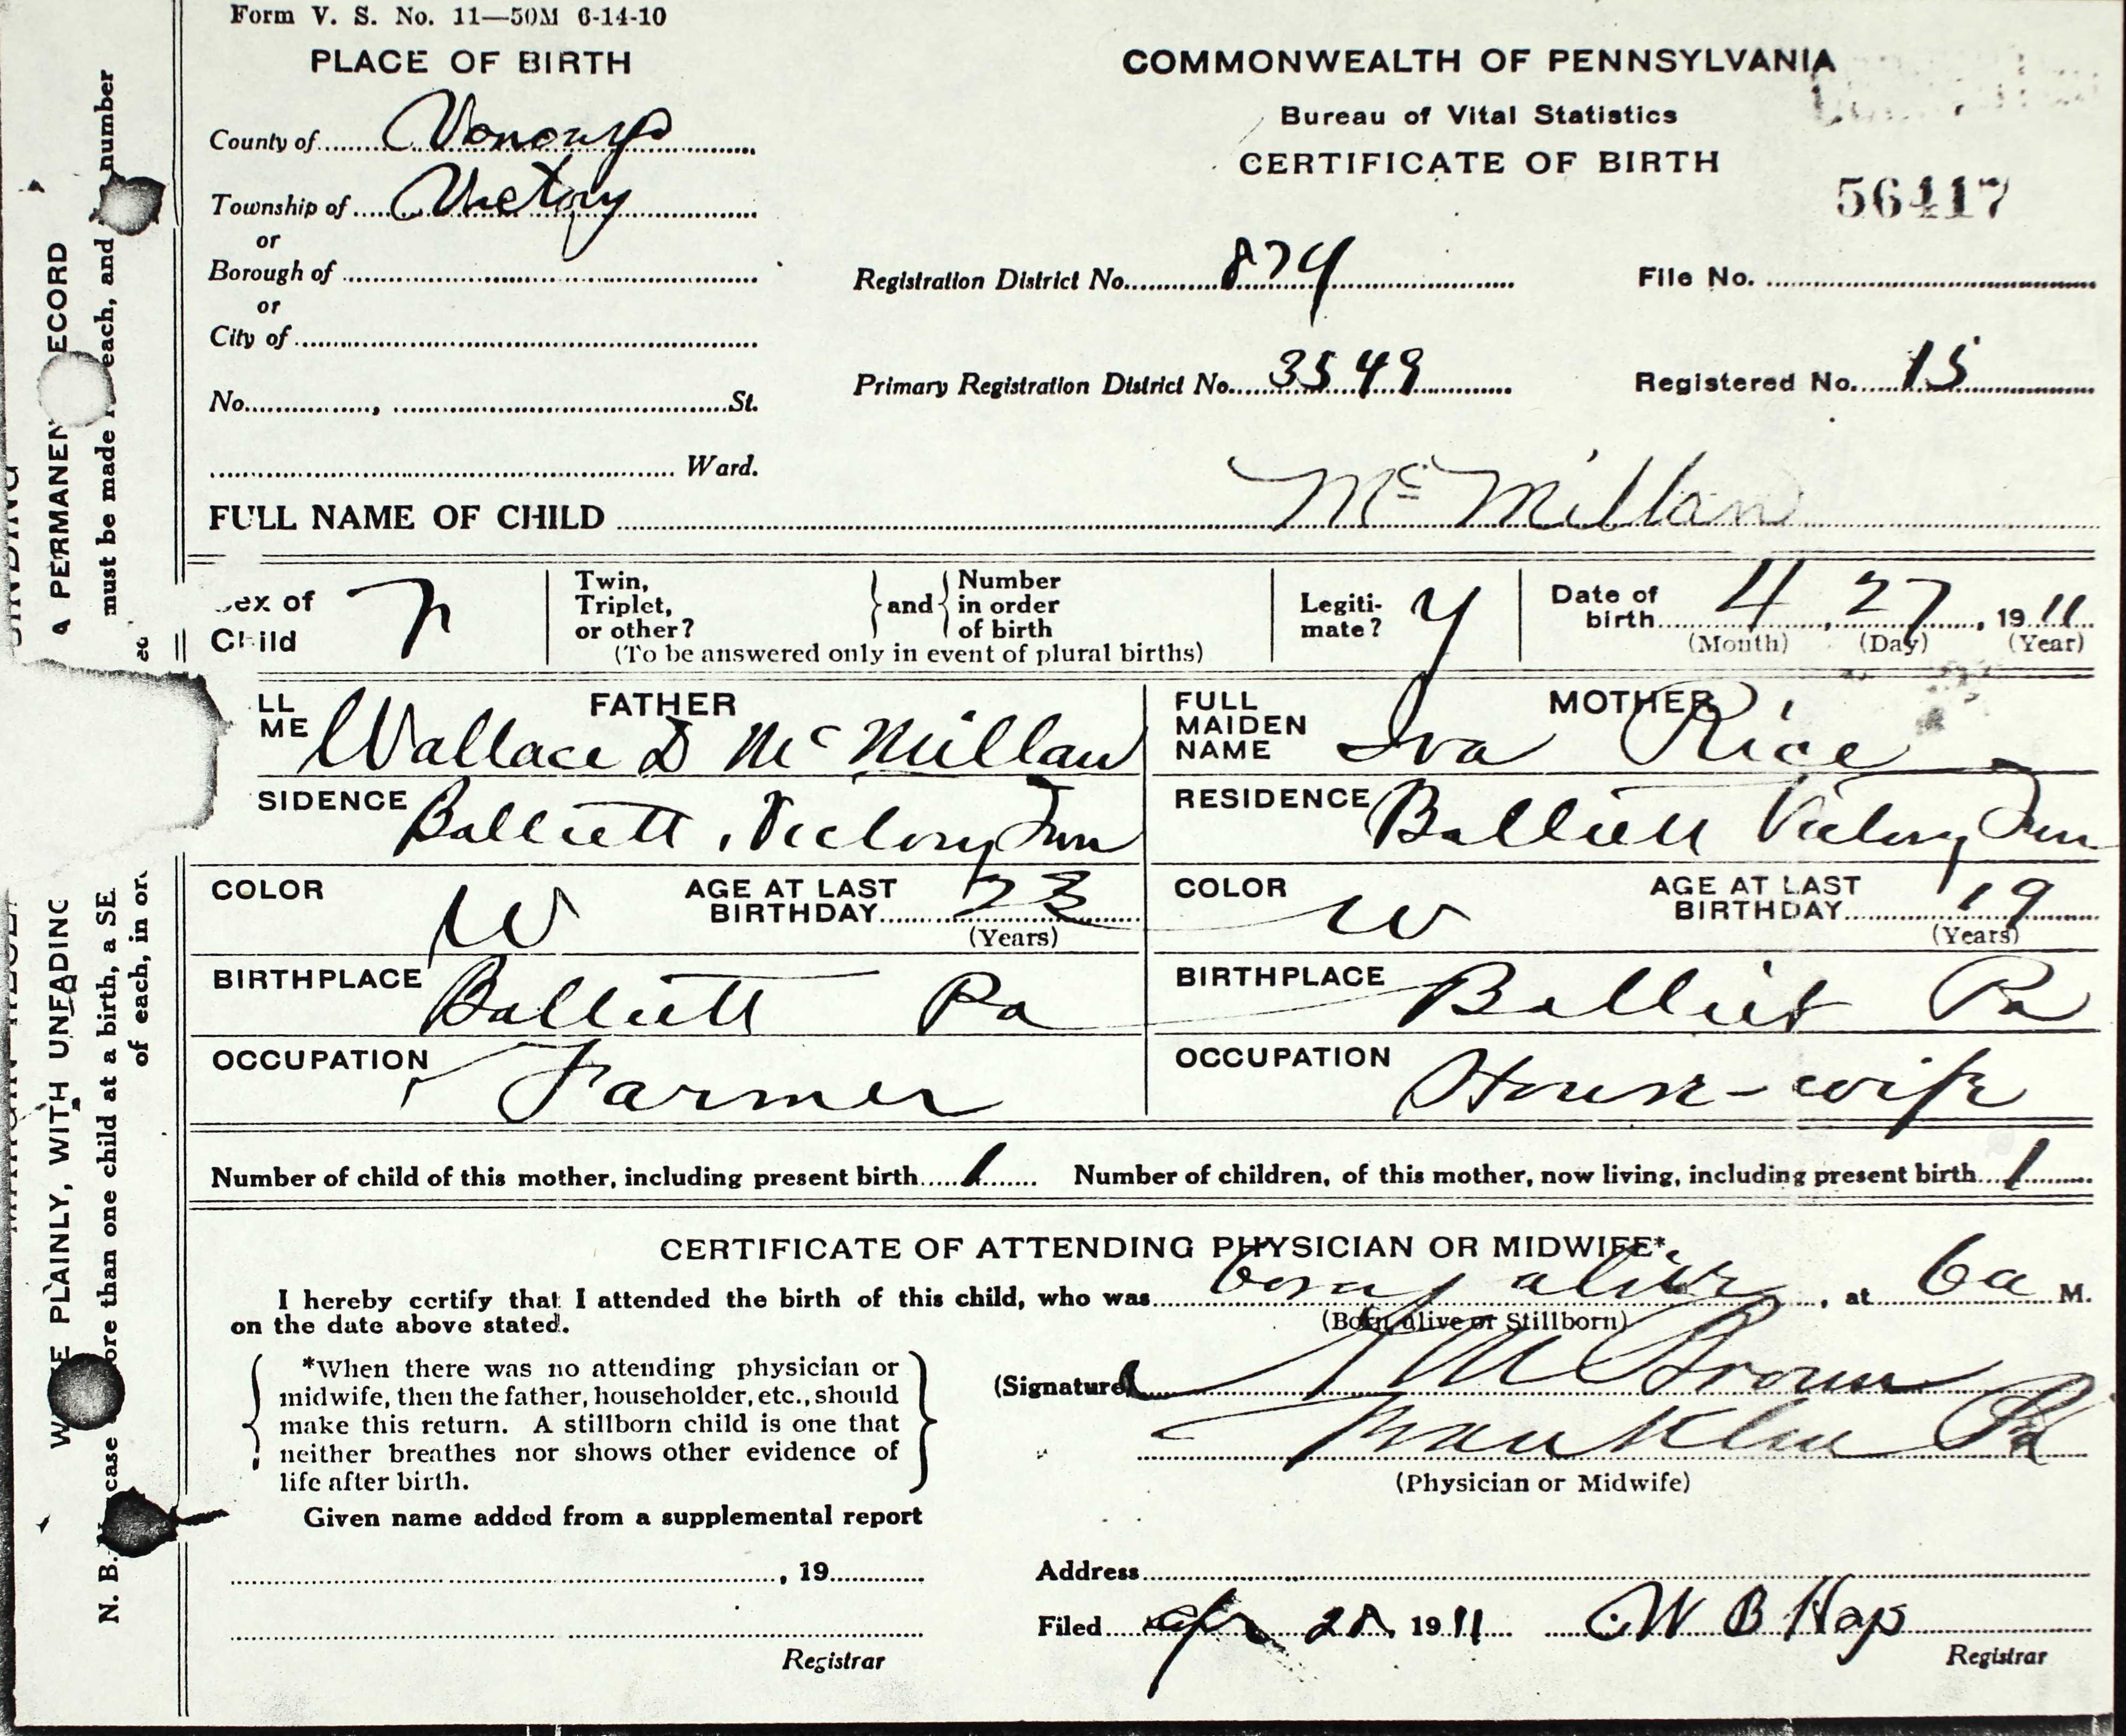 Form V. S. No. 11—50M 6-14-10
PLACE OF BIRTH
COMMONWEALTH OF PENNSYLVANIA
Bureau of Vital Statistics
CERTIFICATE OF BIRTH
56417
County of Venango
Township of Victory
or
Borough of
or
City of
No. , St.
Ward.
Registration District No. 874
File No.
Primary Registration District No. 3549
Registered No. 15
FULL NAME OF CHILD McMillan
ex of Child
Twin, Triplet, or other?
and
Number in order of birth
(To be answered only in event of plural births)
Legiti-mate? y
Date of birth 4, 27, 1911
(Month) (Day) (Year)
LL ME FATHER
Wallace D McMillan
FULL MAIDEN NAME MOTHER
Iva Rice
SIDENCE Balliett, Victory Twn
RESIDENCE Balliett Victory Twn
COLOR W
AGE AT LAST BIRTHDAY 23
(Years)
COLOR W
AGE AT LAST BIRTHDAY 19
(Years)
BIRTHPLACE Balliett Pa
BIRTHPLACE Balliet Pa
OCCUPATION Farmer
OCCUPATION House-wife
Number of child of this mother, including present birth 1
Number of children, of this mother, now living, including present birth 1
CERTIFICATE OF ATTENDING PHYSICIAN OR MIDWIFE*
I hereby certify that I attended the birth of this child, who was born alive, at 6a M.
on the date above stated.
(Born alive or Stillborn)
*When there was no attending physician or
midwife, then the father, householder, etc., should
make this return. A stillborn child is one that
neither breathes nor shows other evidence of
life after birth.
(Signature) M Brown
Franklin Pa
(Physician or Midwife)
Given name added from a supplemental report
, 19
Registrar
Address
Filed Apr 28, 1911 W B Hays
Registrar
A PERMANEN ECORD
must be made each, and number
W E PLAINLY, WITH UNFADING
N. B. case ore than one child at a birth, a SE
of each, in or